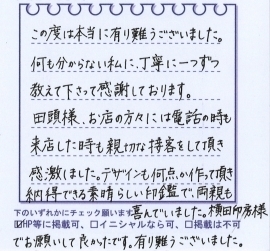 この度は本当に有り難うございました。
何も分からない私に、丁寧に一つずつ
教えて下さって感謝しております。
田頭様、お店の方々には電話の時も
来店した時も親切な接客をして頂き
感激しました。デザインも何点か作って頂き
納得できる素晴らしい印鑑で、両親も
喜んでいました。横田印房様
下のいずれかにチェック願います
☑HP等に掲載可、□イニシャルなら可、□掲載は不可
でお願いして良かったです。有り難うございました。